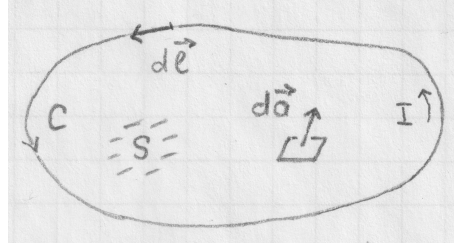 dℓ⃗
C
S
da⃗
I